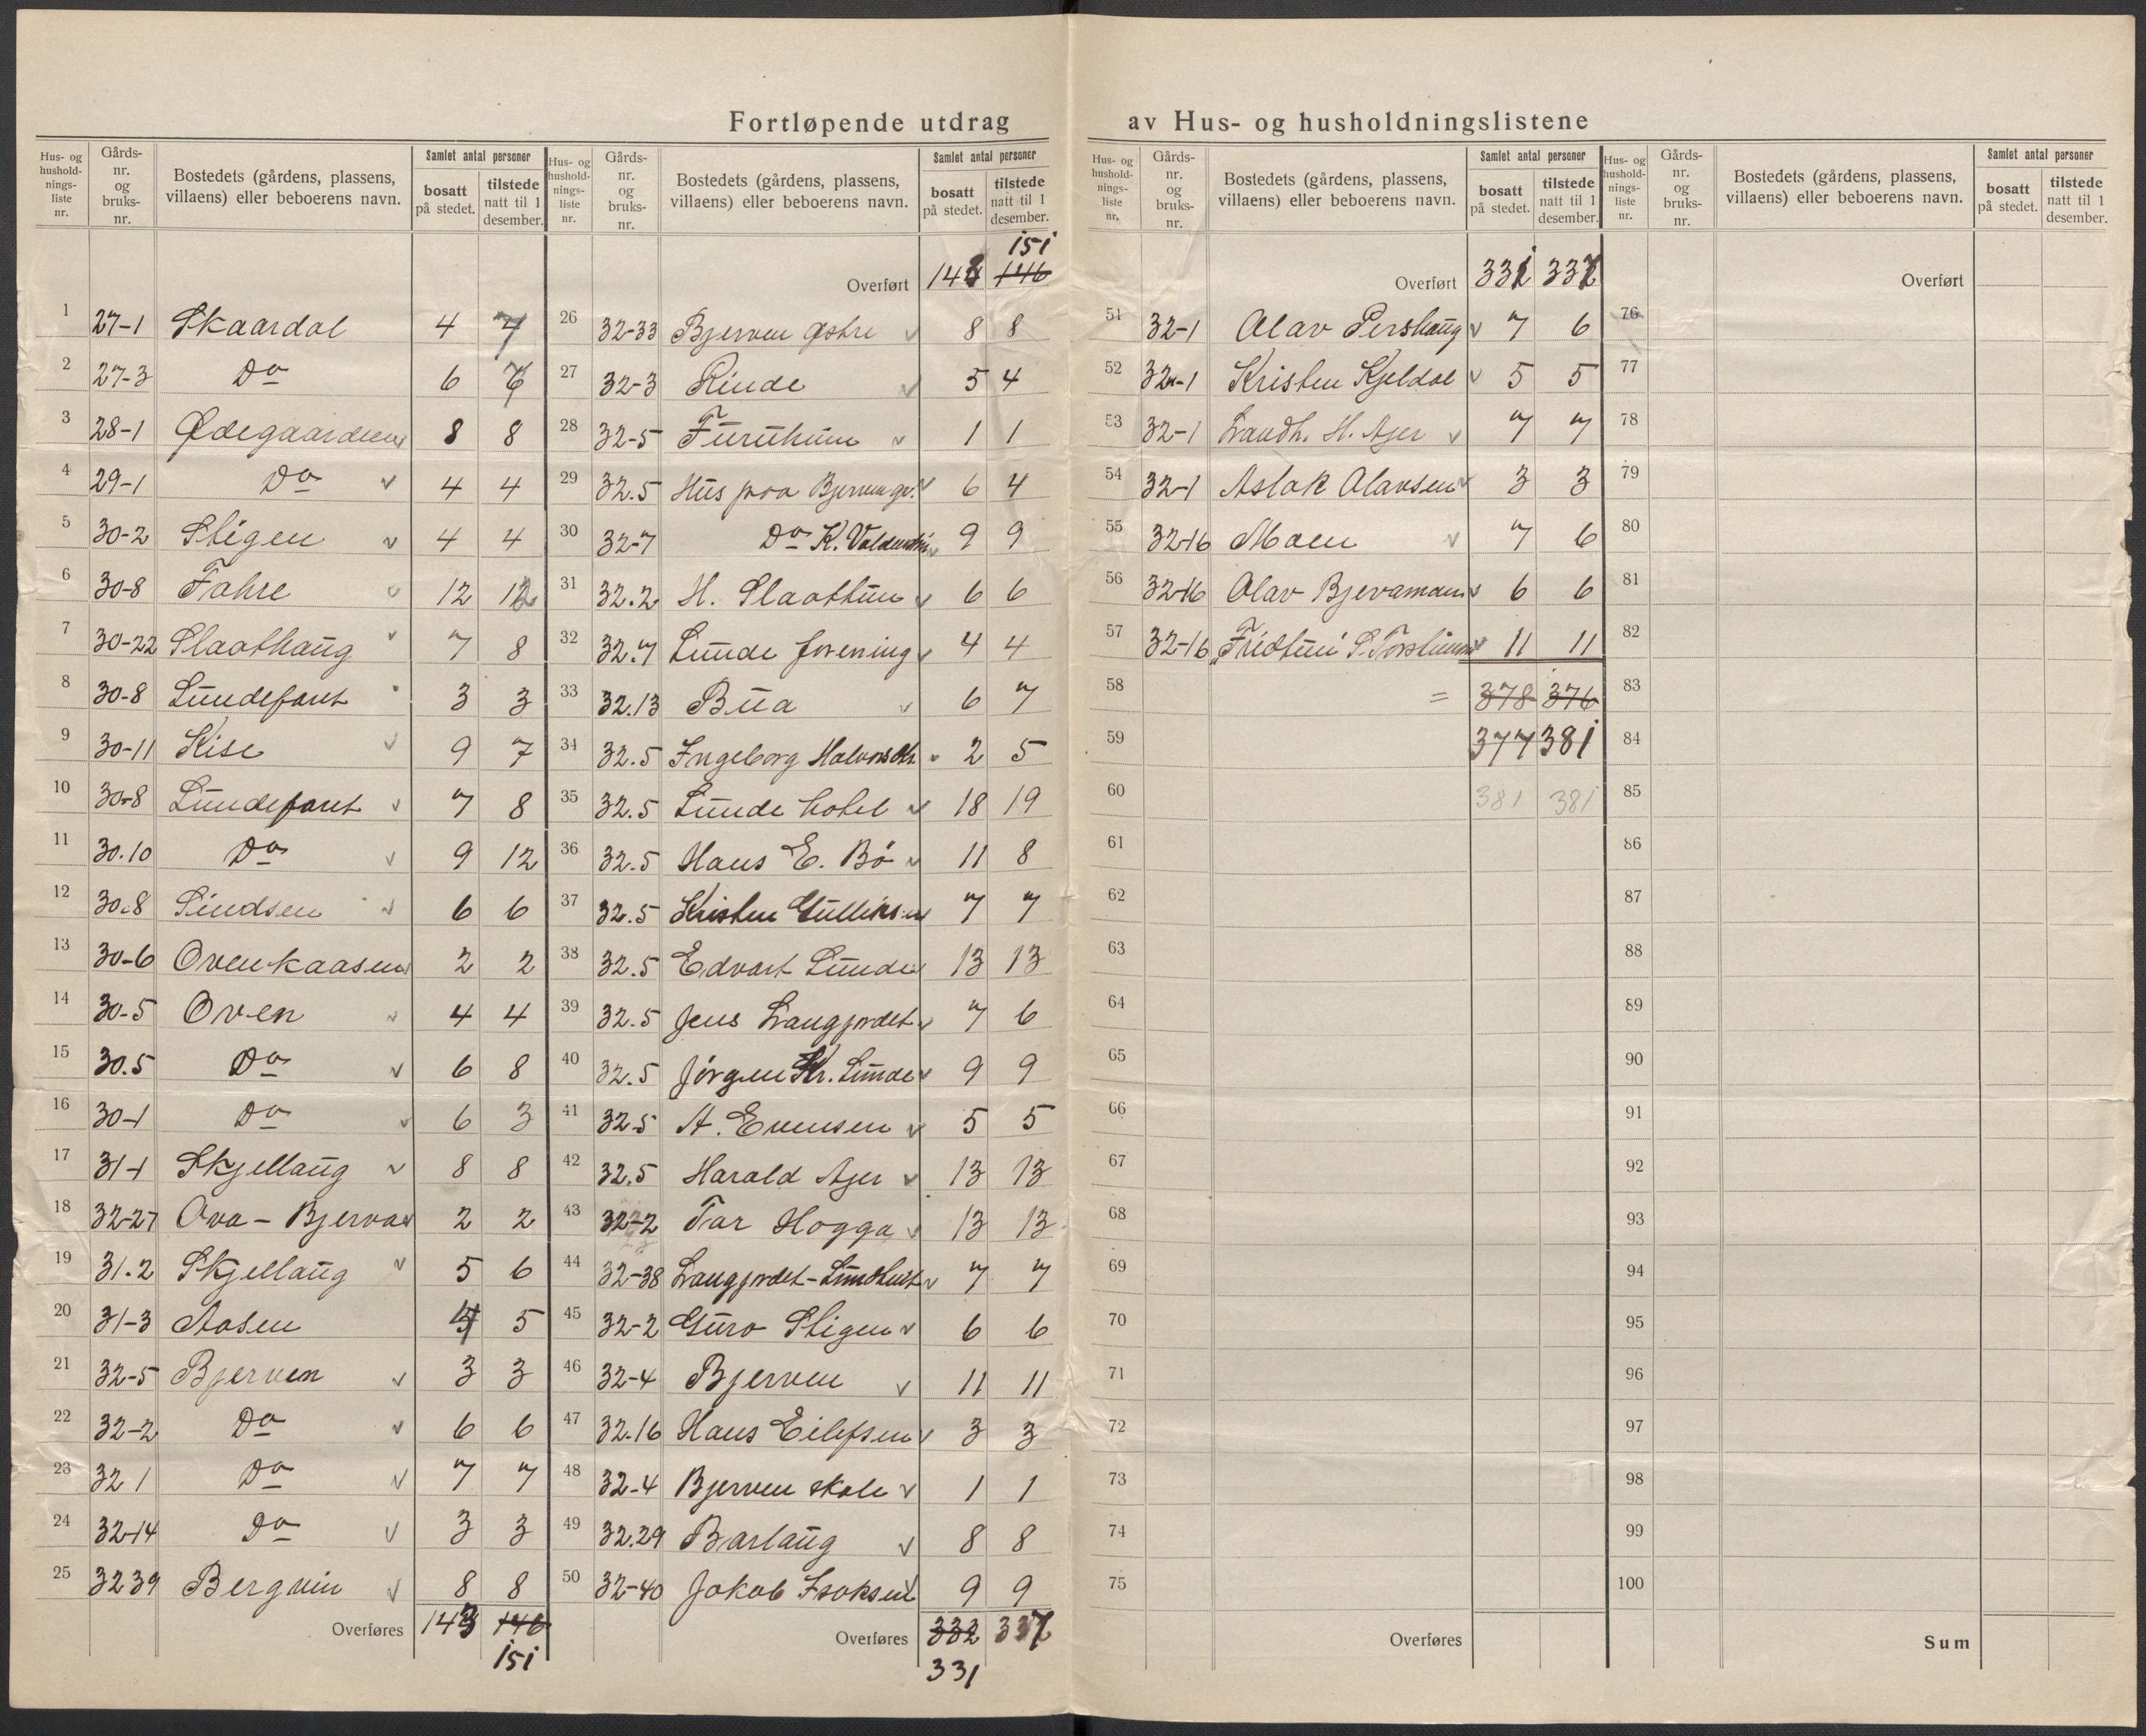 Fortløpende utdrag av Hus- og husholdningslistene
Hus- og husholdnings- liste nr.
Gårds- nr. og bruks- nr.
Bostedets (gårdens, plassens, villaens) eller beboerens navn.
Samlet antal personer
bosatt på stedet.
tilstede natt til 1 desember.
1 27-1 Skaardal 4 7
2 27-3 Do 6
3 28-1 Ødegaarden 8 8
4 29-1 Do v 4 4
5 30-2 Stigen v 4 4
6 30-8 12 12
7 30-22 Slaathaug v 7 8
8 30-8 Lundefaret 3 3
9 30-11 Kise v 9 7
10 30-8 Lundefaret v 7 8
11 30.10 Do v 9 12
12 30.8 v 6 6
13 30-6 Ovenkaasen 2 2
14 30-5 Oven v 4 4
15 30.5 Do v 6 8
16 30-1 Do v 6 3
17 31-1 Skjellaug v 8 8
18 32-27 Ova - Bjerva 2 2
19 31.2 Skjellaug v 5 6
20 31-3 Aasen 5
21 32-5 Bjerven v 3 3
22 32-2 Do v 6 6
23 32 1 Do v 7 7
24 32-14 Do v 3 3
25 32 39 Bergvin v 8 8
Overføres 143 146
151
Hus- og husholdnings- liste nr.
Gårds- nr. og bruks- nr.
Bostedets (gårdens, plassens, villaens) eller beboerens navn.
Samlet antal personer
bosatt på stedet.
tilstede natt til 1 desember.
151
Overført 143 146
26 32-33 Bjerven østre v 8 8
27 32-3 Rinde v 5 4
28 32-5 Furuheim v 1 1
29 32.5 Hus paa Bjerven gr. v 6 4
30 32-7 Do K. v 9 9
31 32.2 H. Slaattun v 6 6
32 32.7 Lunde forening v 4 4
33 32.13 Bua v 6 7
34 32.5 Ingeborg Halvorsdtr. v 2 5
35 32.5 Lunde hotel v 18 19
36 32.5 Hans E. Bö v 11 8
37 32.5 Kristen Gulliksen 7 7
38 32.5 Edvart Lunde v 13 13
39 32.5 Jens Langjordet v 7 6
40 32.5 Jörgen Kr. Lunde v 9 9
41 32.5 A. Evensen v 5 5
42 32.5 Harald Ajer v 13 13
43 32-2 Tar Hogga v 13 13
44 32-38 Langjordet - v 7 7
45 32-2 Guro Stigen v 6 6
46 32-4 Bjerven v 11 11
47 32.16 Hans Eilefsen v 3 3
48 32-4 Bjerven skole v 1 1
49 32.29 Barlaug v 8 8
50 32-40 Jakob Isaksen 9 9
Overføres 332 337
331
Hus- og husholdnings- liste nr.
Gårds- nr. og bruks- nr.
Bostedets (gårdens, plassens, villaens) eller beboerens navn.
Samlet antal personer
bosatt på stedet.
tilstede natt til 1 desember.
Overført 331 337
51 32-1 Olav Pershaug v 7 6
52 32-1 Kristen Kjeldal v 5 5
53 32-1 Landh. H. Ajer v 7 7
54 32-1 Aslak Olavsen v 3 3
55 32-16 Moen v 7 6
56 32-16 Olav Bjervamoen v 6 6
57 32-16 11 11
58 = 378 376
59 377 381
60 381 381
61
62
63
64
65
66
67
68
69
70
71
72
73
74
75
Overføres
Hus- og husholdnings- liste nr.
Gårds- nr. og bruks- nr.
Bostedets (gårdens, plassens, villaens) eller beboerens navn.
Samlet antal personer
bosatt på stedet.
tilstede natt til 1 desember.
Overført
76
77
78
79
80
81
82
83
84
85
86
87
88
89
90
91
92
93
94
95
96
97
98
99
100
Sum